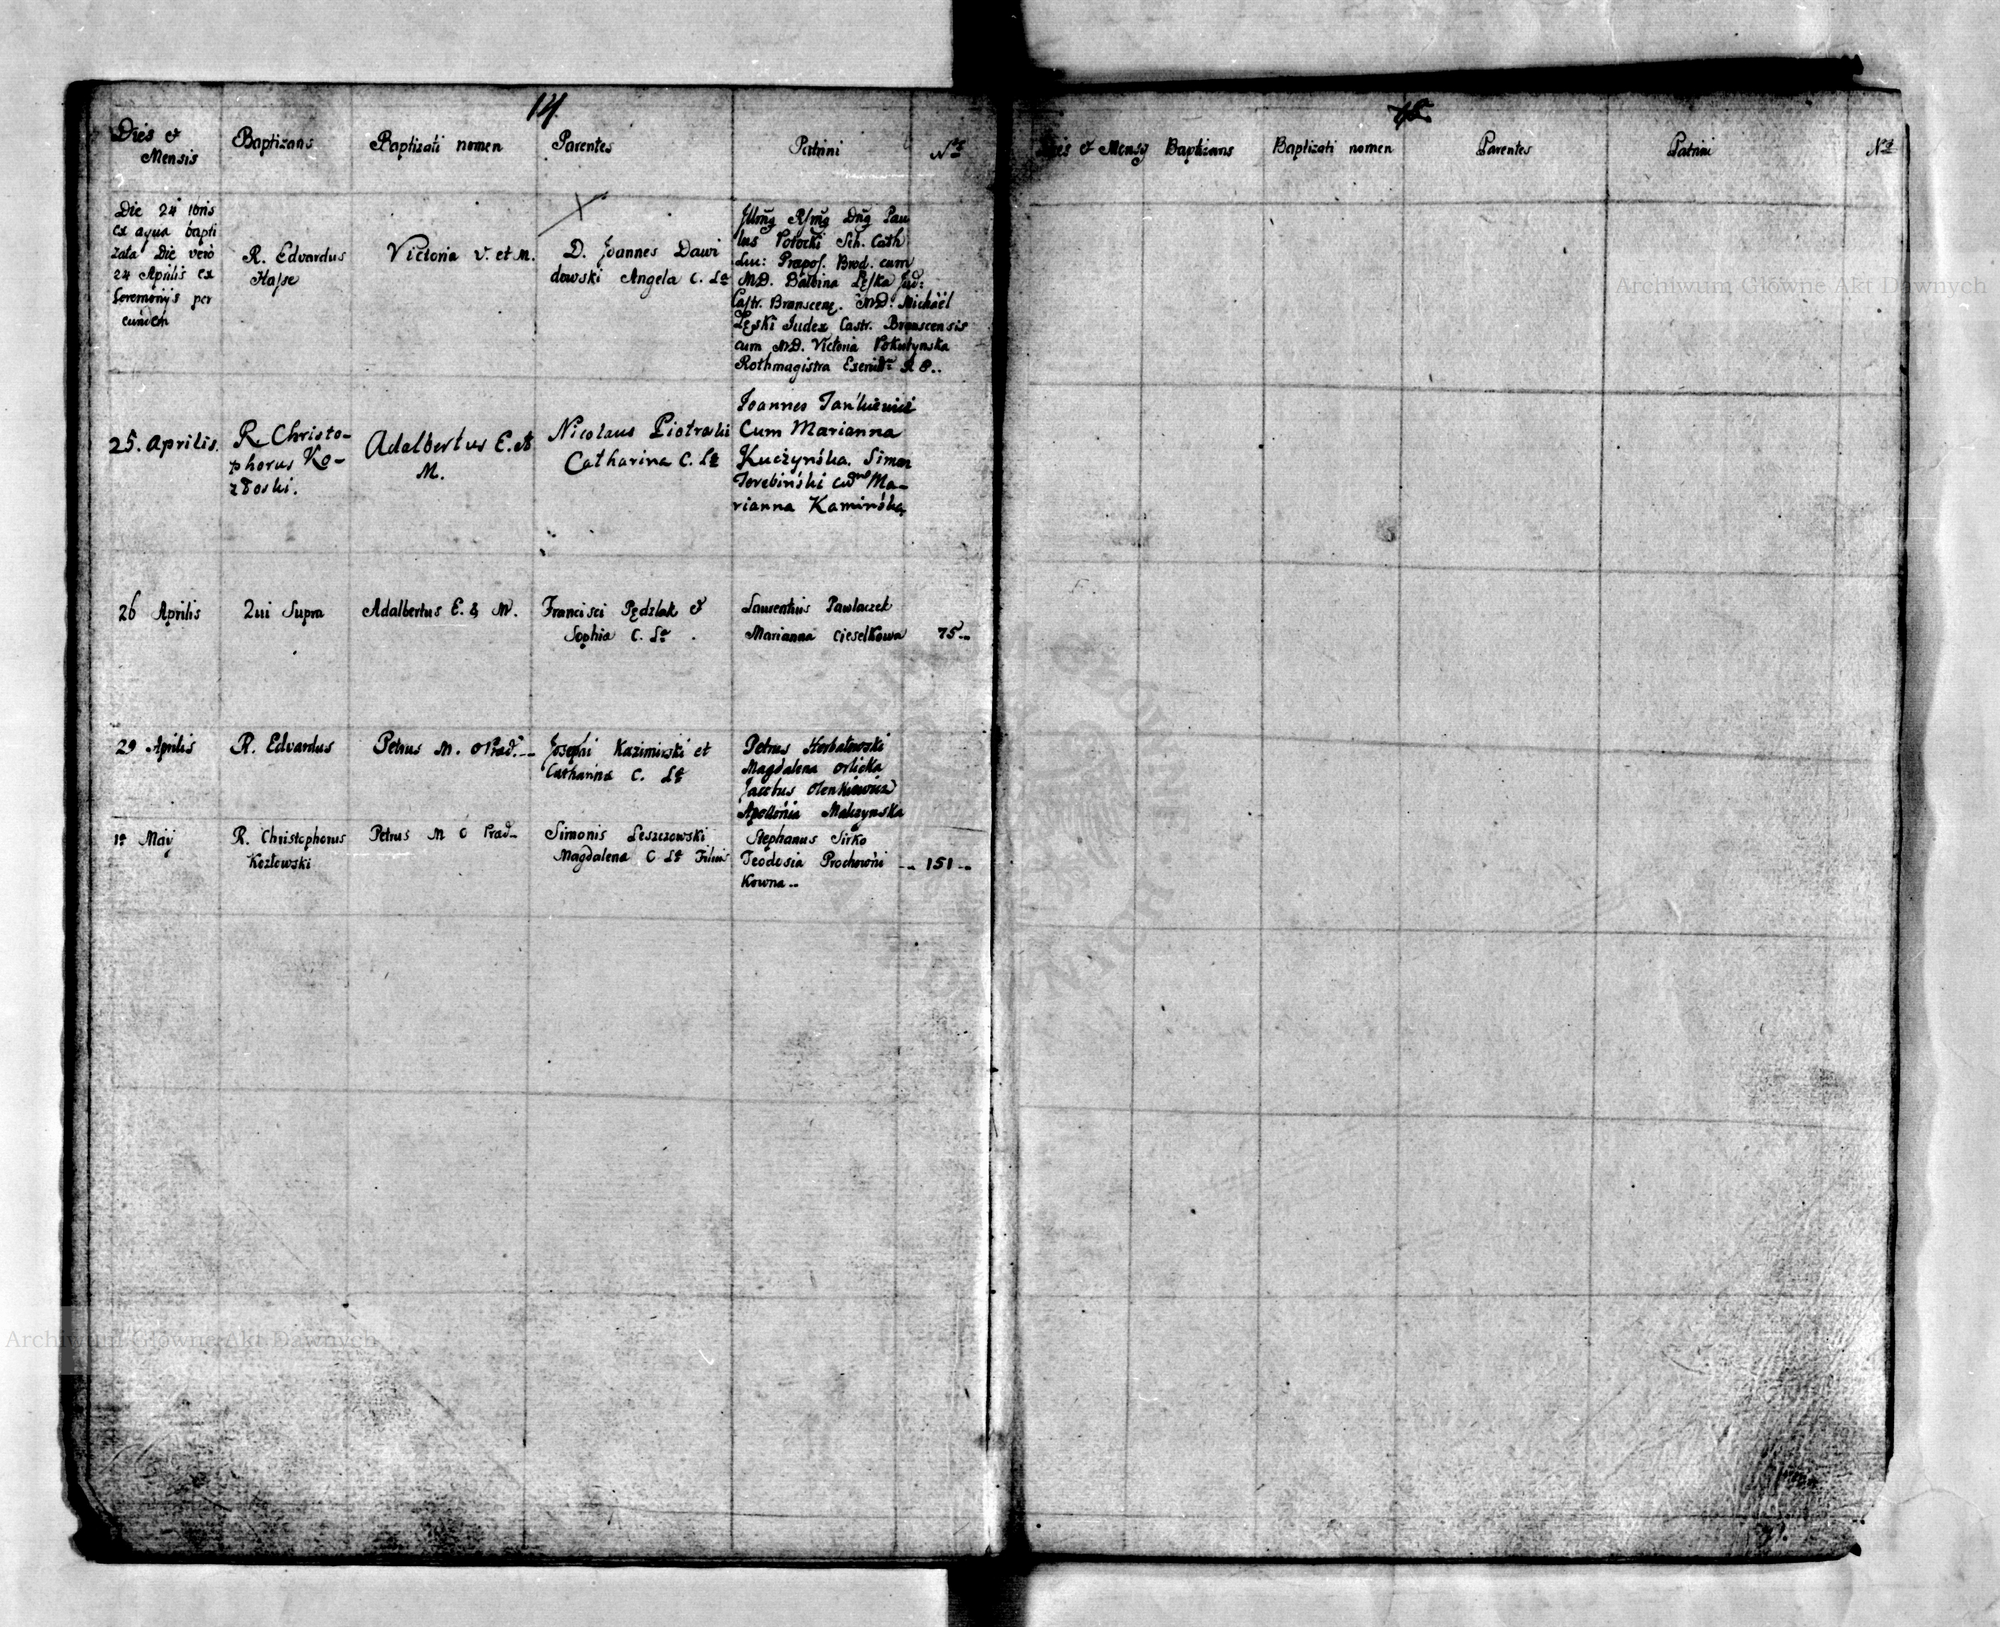 14.
Dies &
Mensis
Baptizans
Baptizati nomen
Parentes
Patrini
Nrs
Die 24 10bris
ex aqua bapti
zata Die vero
24 Aprilis ex
Ceremonijs per
eundem
R. Edvardus
Hasse
Victoria V. et M.
D. Joannes Dawi
dowski Angela C. La
Paulus Potocki Sch. Cath
Luc: Præpos. Brod. cum
MD. Balbina Lęska Jud:
Castr. Branscens. MD. Michaël
Lęski Iudex Castr. Branscensis
cum MD. Victoria Pokutynska
Rothmagistra
25. Aprilis.
R. Christo-
phorus Ko-
złoski.
Adalbertus E. et
M.
Nicolaus Piotroski
Catharina C. La
Joannes Jankiewicz
Cum Marianna
Kuczyńska. Simon
Terebiński cum Ma-
rianna Kamińska
26 Aprilis
Qui Supra
Adalbertus E. & M.
Francisci Pędzlak &
Sophia C. La
Laurentius Pawlaczek
Marianna Cieselkowa
75..
29 Aprilis
R. Edvardus
Petrus M. O Præd. --
Josephi Kazimirski et
Catharina C. La
Petrus Horbatowski
Magdalena Orlicka
Jacobus Olenkiewicz
Apollonia Malczynska
1a Maij
R. Christophorus
Kozlowski
Petrus M O Præd--
Simonis Leszczowski
Magdalena C La Filius
Stephanus Sirko
Teodosia Prochowni
kowna --
-- 151 --
Dies & Mensy
Baptizans
Baptizati nomen
Parentes
Patrini
Nrs
Archiwum Główne Akt Dawnych
Archiwum Główne Akt Dawnych